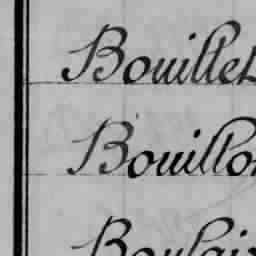 Bouillet
Bouillon
Boulair